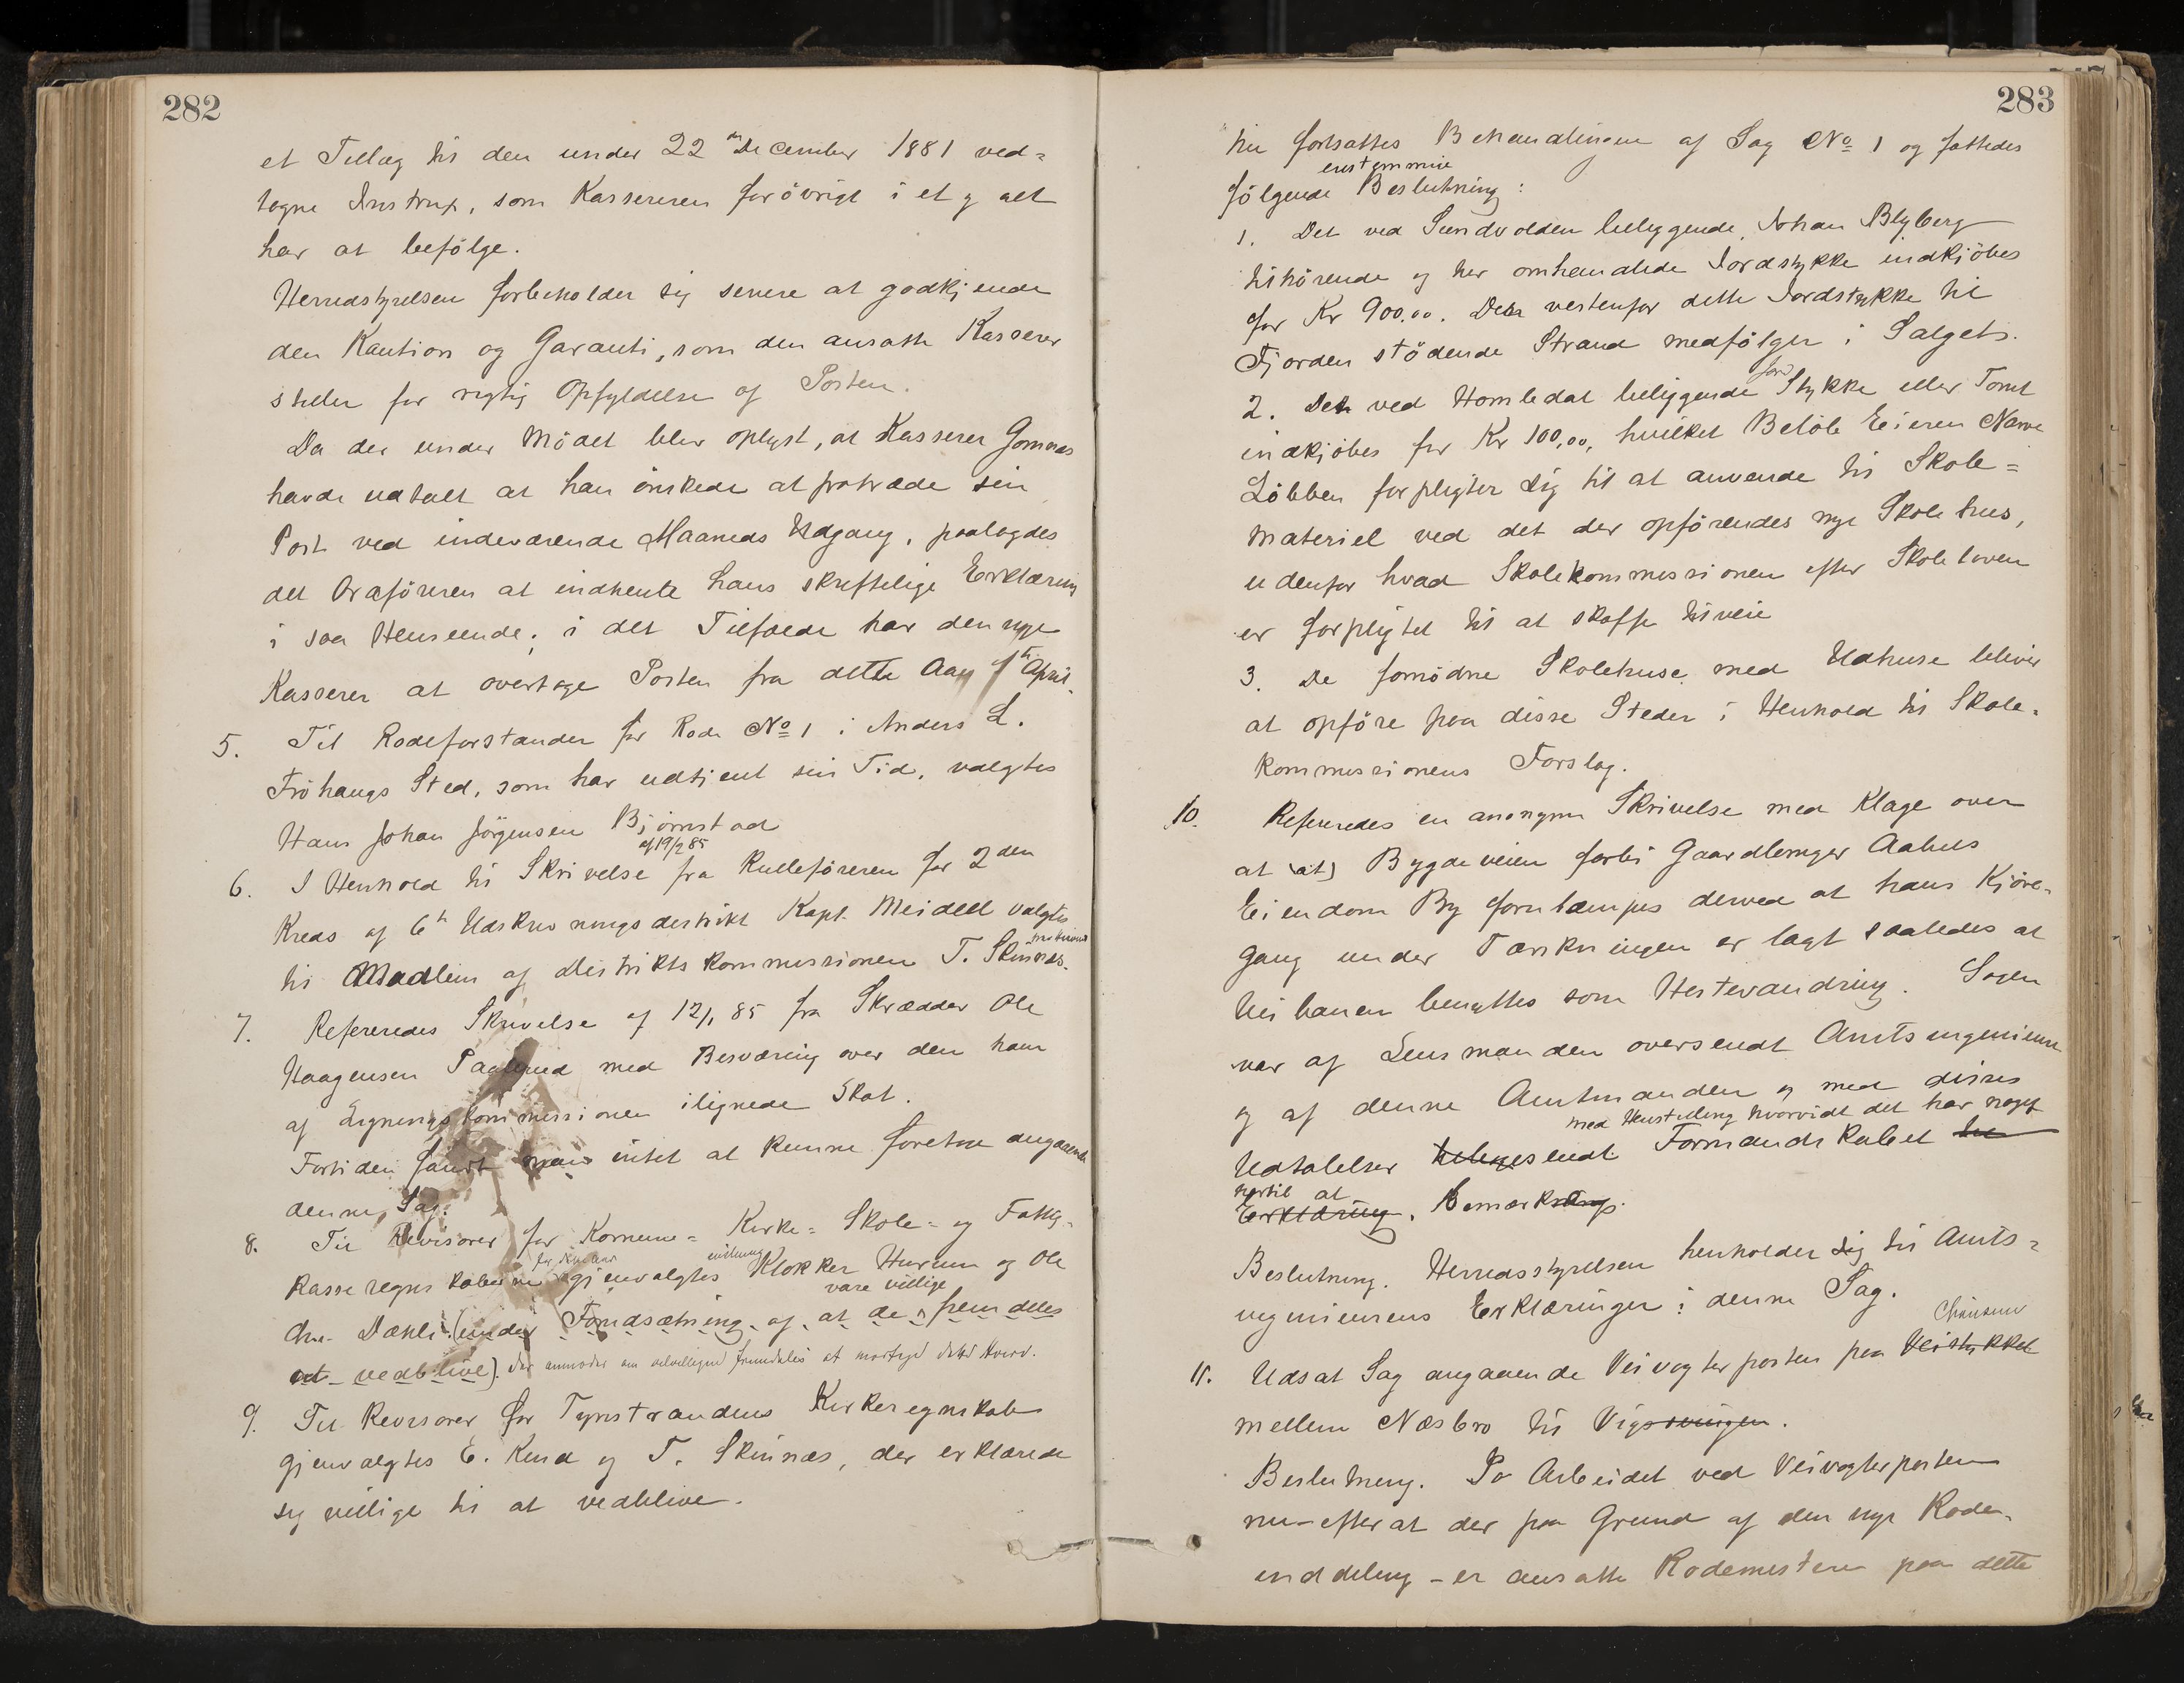 282
et Tillæg til den under 22 de December 1881 ved=
tagne Instrux, som Kassereren forövrigt i et og alt
har at befölge.
Herredstyrelsen forbeholder sig senere at godkjende
den Kaution og Garanti, som den ansatte Kasserer
stiller for rigtig Opfyldelse af Posten.
Da der under Mödet blev oplyst, at Kasserer Gomnæs
havde udtalt at han önskede at fratræde sin
Post ved indeværende Maaneds Udgang, paalagdes
det Ordföreren at indhente hans skriftelige Erklæring
i saa Henseende; i det Tilfælde har den nye
Kasserer at overtage Posten fra dette Aars 1ste April.
5. Til Rodeforstander for Rode No 1 i Anders L.
Fröhaugs Sted, som har udtjent sin Tid, valgtes
Hans Johan Jörgensen Björnstad
af 19/2 85
6. I Henhold til Skrivelse fra Rulleföreren for 2den
Kreds af 6te Udskrivningsdistrikt Kapt. Meidell valgtes
til Medlem af Distriktskommissionen T. Skinnæs.
7. Refereredes Skrivelse af 12/1 85 fra Skrædder Ole
Haagensen med Besværing over den ham
af Ligningskommissionen ilignede Skat.
Fortiden fandt man intet at kunne foretage angaaende
denne Sag.
8. Til Revisorer for Kommune= Kirke= Skole= og Fattig=
kasseregnskaberne gjenvalgtes Klokker Hurum og Ole
vare villige
Chr. Dæhli (under Forudsætning af at de fremdeles
at vedblive). der anmodes om velvilligen fremdeles at modtage dette Hverv.
9. Til Revisorer for Tyristrandens Kirkeregnskab
gjenvalgtes E. Rud og T. Skinnæs, der erklærede
sig villige til at vedblive.
283
fortsattes Behandlingen af Sag No 1 og fattedes
enstemmig
fölgende Beslutning:
1. Det ved Sundvolden beliggende, Johan Blyberg
tilhörende og her omhandlede Jordstykke indkjöbes
for Kr 900.00. Den vestenfor dette Jordstykke til
Fjorden stödende Strand medfölger i Salget.
2. Det ved Homledal beliggende Jord Stykke eller Tomt
indkjöbes for Kr 100,00, hvilket Belöb Eieren Narve
Löbben forpligter sig til at anvende til Skole=
materiel ved det der opförendes nye Skolehus,
udenfor hvad Skolekommissionen efter Skoleloven
er forpligtet til at skaffe tilveie
3. De fornödne Skolehuse med Udhuse bliver
at opföre paa disse Steder i Henhold til Skole=
kommissionens Forslag.
10. Refereredes en anonym Skrivelse med Klage over
at (at) Bygdeveien forbi Gaardbruger Aabus
Eiendom By forulempes derved at hans Kjöre=
gang under Tærskningen er lagt saaledes at
Veibanen benyttes som Hestevandring. Sagen
var af Lensmanden oversendt Amtsingenieuren
og af denne Amtmanden og med disses
med Henstilling hvorvidt det har noget
Udtalelser Formandskabet til
hertil at
Erklæring. Bemærke.
Beslutning. Herredsstyrelsen henholder sig til Amts=
ingenieurens Erklæringer i denne Sag.
11. Udsat Sag angaaende Veivogterposten paa Veistykket
mellem Næsbro til
Beslutning. Da Arbeidet ved Veivogterposten
nu – efterat der paa Grund af den nye Rode=
inddeling – er ansatte Rodemestere paa dette